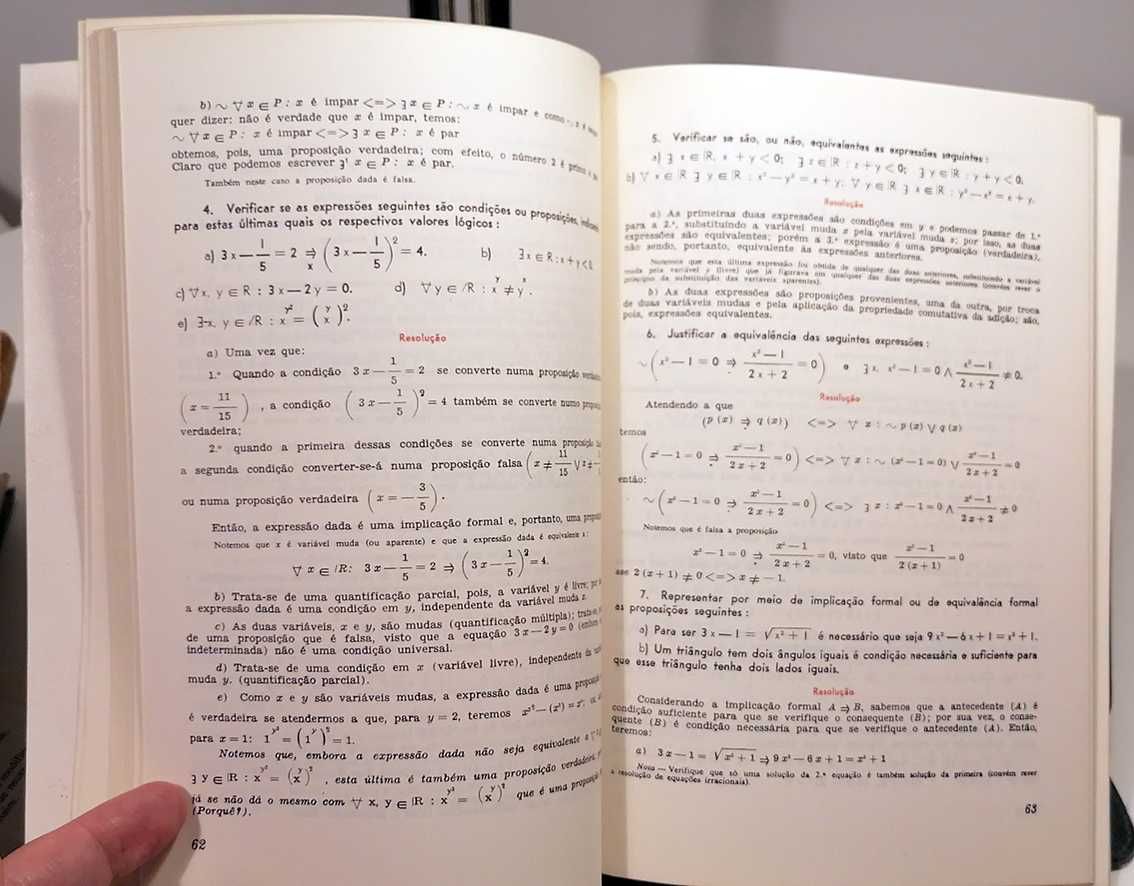 b) ∼ ∀ x ∈ P : x é impar <=> ∃ x ∈ P : ∼ x é impar e como ∼ x é
quer dizer: não é verdade que x é impar, temos:
∼ ∀ x ∈ P : x é impar <=> ∃ x ∈ P : x é par
obtemos, pois, uma proposição verdadeira; com efeito, o número 2 é primo e
Claro que podemos escrever ∃¹ x ∈ P : x é par.
Também neste caso a proposição dada é falsa.
4. Verificar se as expressões seguintes são condições ou proposições,
para estas últimas quais os respectivos valores lógicos :
a) 3x — 1/5 = 2 ⇒ₓ (3x — 1/5)² = 4. b) ∃x ∈ ℝ : x + y < 0.
c) ∀x, y ∈ ℝ : 3x — 2y = 0. d) ∀y ∈ ℝ : x^y ≠ y^x.
e) ∃x, y ∈ ℝ : x^(y²) = (x^y)².
Resolução
a) Uma vez que:
1.º Quando a condição 3x — 1/5 = 2 se converte numa proposição
(x = 11/15), a condição (3x — 1/5)² = 4 também se converte numa
verdadeira;
2.º quando a primeira dessas condições se converte numa proposição
a segunda condição converter-se-á numa proposição falsa (x ≠ 11/15 ∨ x ≠
ou numa proposição verdadeira (x = — 3/5).
Então, a expressão dada é uma implicação formal e, portanto, uma
Notemos que x é variável muda (ou aparente) e que a expressão dada é equivalente a:
∀ x ∈ ℝ: 3x — 1/5 = 2 ⇒ (3x — 1/5)² = 4.
b) Trata-se de uma quantificação parcial, pois, a variável y é livre;
a expressão dada é uma condição em y, independente da variável muda x.
c) As duas variáveis, x e y, são mudas (quantificação múltipla);
de uma proposição que é falsa, visto que a equação 3x — 2y = 0
indeterminada) não é uma condição universal.
d) Trata-se de uma condição em x (variável livre), independente da
muda y. (quantificação parcial).
e) Como x e y são variáveis mudas, a expressão dada é uma
é verdadeira se atendermos a que, para y = 2, teremos
para x = 1: 1^(y²) = (1^y)² = 1.
Notemos que, embora a expressão dada não seja equivalente a
∃ y ∈ ℝ : x^(y²) = (x^y)², esta última é também uma proposição verdadeira,
já se não dá o mesmo com ∀ x, y ∈ ℝ : x^(y²) = (x^y)² que é uma
(Porquê?).
62
5. Verificar se são, ou não, equivalentes as expressões seguintes :
a) ∃ x ∈ ℝ, x + y < 0; ∃ z ∈ ℝ : z + y < 0; ∃ y ∈ ℝ : y + y < 0.
b) ∀ x ∈ ℝ ∃ y ∈ ℝ : x² — y² = x + y; ∀ y ∈ ℝ ∃ x ∈ ℝ : y² — x² = x + y.
Resolução
a) As primeiras duas expressões são condições em y e podemos passar de 1.ª
para a 2.ª, substituindo a variável muda x pela variável muda z; por isso, as duas
expressões são equivalentes; porém a 3.ª expressão é uma proposição (verdadeira),
não sendo, portanto, equivalente às expressões anteriores.
Notemos que esta última expressão foi obtida de qualquer das duas anteriores, substituindo a variável
muda pela variável y (livre) que já figurava em qualquer das duas expressões anteriores (convém rever o
princípio da substituição das variáveis aparentes).
b) As duas expressões são proposições provenientes, uma da outra, por troca
de duas variáveis mudas e pela aplicação da propriedade comutativa da adição; são,
pois, expressões equivalentes.
6. Justificar a equivalência das seguintes expressões :
∼ (x² — 1 = 0 ⇒ (x² — 1)/(2x + 2) = 0) e ∃ x, x² — 1 = 0 ∧ (x² — 1)/(2x + 2) ≠ 0.
Resolução
Atendendo a que
(p (x) ⇒ q (x)) <=> ∀ x : ∼ p (x) ∨ q (x)
temos
(x² — 1 = 0 ⇒ (x² — 1)/(2x + 2) = 0) <=> ∀ x : ∼ (x² — 1 = 0) ∨ (x² — 1)/(2x + 2) = 0
então:
∼ (x² — 1 = 0 ⇒ (x² — 1)/(2x + 2) = 0) <=> ∃ x : x² — 1 = 0 ∧ (x² — 1)/(2x + 2) ≠ 0
Notemos que é falsa a proposição
x² — 1 = 0 ⇒ (x² — 1)/(2x + 2) = 0, visto que (x² — 1)/(2(x + 1)) = 0
2 (x + 1) ≠ 0 <=> x ≠ — 1.
7. Representar por meio de implicação formal ou de equivalência formal
as proposições seguintes :
a) Para ser 3x — 1 = √(x² + 1) é necessário que seja 9x² — 6x + 1 = x² + 1.
b) Um triângulo tem dois ângulos iguais é condição necessária e suficiente para
que esse triângulo tenha dois lados iguais.
Resolução
Considerando a implicação formal A ⇒ B, sabemos que a antecedente (A) é
condição suficiente para que se verifique o consequente (B); por sua vez, o conse-
quente (B) é condição necessária para que se verifique o antecedente (A). Então,
teremos:
a) 3x — 1 = √(x² + 1) ⇒ 9x² — 6x + 1 = x² + 1
Nota — Verifique que só uma solução da 2.ª equação é também solução da primeira (convém rever
a resolução de equações irracionais).
63